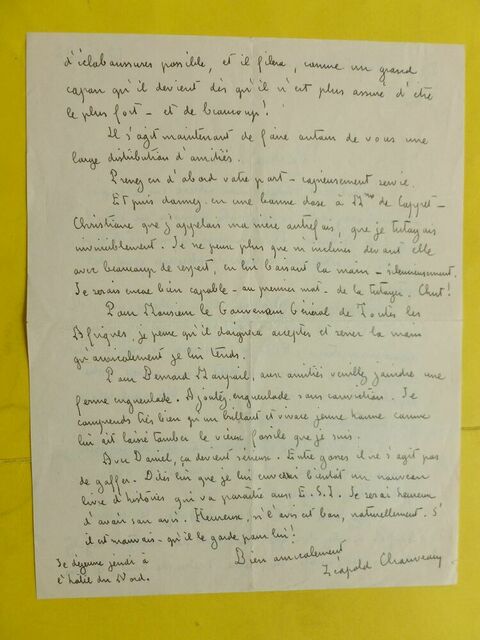 d'éclaboussures possible, et il filera, comme un grand
capon qu'il devient dès qu'il n'est plus assuré d'être
le plus fort - et de beaucoup!
Il s'agit maintenant de faire autour de vous une
large distribution d'amitiés.
Prenez en d'abord votre part - copieusement servie.
Et puis donnez en une bonne dose à Mme de Coppet -
Christiane que j'appelais ma mère autrefois, que je tutoyais
invinciblement. Je ne peux plus que m'incliner devant elle
avec beaucoup de respect, en lui baisant la main - silencieusement.
Je serais encore bien capable - au premier mot - de la tutoyer. Chut!
Pour Monsieur le Gouverneur Général de Toutes les
Afriques, je pense qu'il daignera accepter et serrer la main
qu'amicalement je lui tends.
Pour Bernard Maupoil, aux amitiés veuillez joindre une
ferme engueulade. Ajoutez, engueulade sans conviction. Je
comprends très bien qu'un brillant et vivace jeune homme comme
lui ait laissé tomber le vieux fossile que je suis.
Avec Daniel, ça devient sérieux. Entre gosses il ne s'agit pas
de gaffer. Dites lui que je lui enverrai bientôt un nouveau
livre d'histoires qui va paraître aux E.S.I. Je serai heureux
d'avoir son avis. Heureux, si l'avis est bon, naturellement. S'
il est mauvais - qu'il le garde pour lui!
Bien amicalement
Léopold Chauveau
Je déjeune jeudi à
l'hôtel du Nord.